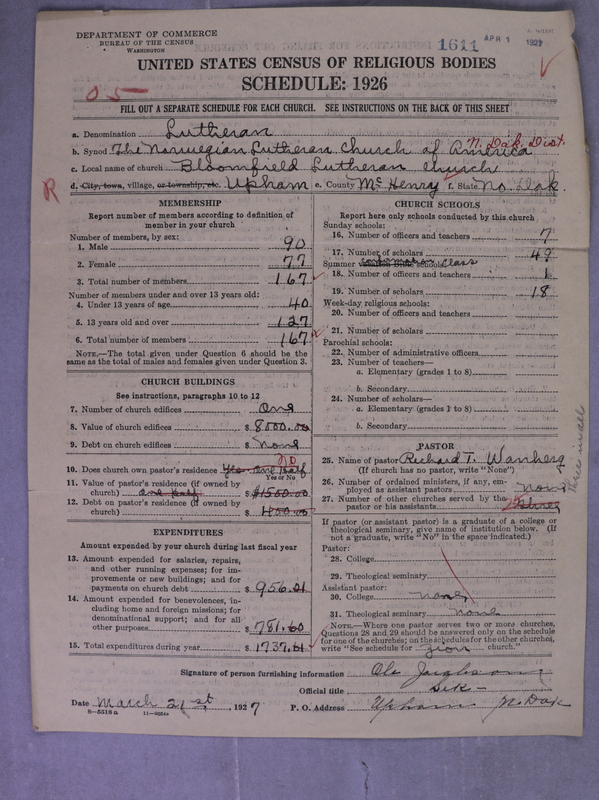 DEPARTMENT OF COMMERCE
BUREAU OF THE CENSUS
WASHINGTON
1611 APR 1 1927
UNITED STATES CENSUS OF RELIGIOUS BODIES
SCHEDULE: 1926
05
FILL OUT A SEPARATE SCHEDULE FOR EACH CHURCH. SEE INSTRUCTIONS ON THE BACK OF THIS SHEET
a. Denomination Lutheran
b. Synod The Norwegian Lutheran Church of America N. Dak. Dist.
c. Local name of church Bloomfield Lutheran church
R
d. City, town, village, or township, etc. Upham e. County McHenry f. State No. Dak.
MEMBERSHIP
Report number of members according to definition of
member in your church
Number of members, by sex:
1. Male 90
2. Female 77
3. Total number of members 167
Number of members under and over 13 years old:
4. Under 13 years of age 40
5. 13 years old and over 127
6. Total number of members 167
NOTE.—The total given under Question 6 should be the
same as the total of males and females given under Question 3.
CHURCH BUILDINGS
See instructions, paragraphs 10 to 12
7. Number of church edifices One
8. Value of church edifices $ 8000.00
9. Debt on church edifices $ None
10. Does church own pastor's residence Yes one half no
Yes or No
11. Value of pastor's residence (if owned by
church) one half $ 1500.00
12. Debt on pastor's residence (if owned by
church) $
EXPENDITURES
Amount expended by your church during last fiscal year
13. Amount expended for salaries, repairs,
and other running expenses; for im-
provements or new buildings; and for
payments on church debt $ 956.01
14. Amount expended for benevolences, in-
cluding home and foreign missions; for
denominational support; and for all
other purposes $ 781.60
15. Total expenditures during year $ 1737.61
CHURCH SCHOOLS
Report here only schools conducted by this church
Sunday schools:
16. Number of officers and teachers 7
17. Number of scholars 49
Summer Class
18. Number of officers and teachers 1
19. Number of scholars 18
Week-day religious schools:
20. Number of officers and teachers
21. Number of scholars
Parochial schools:
22. Number of administrative officers
23. Number of teachers—
a. Elementary (grades 1 to 8)
b. Secondary
24. Number of scholars—
a. Elementary (grades 1 to 8)
b. Secondary
PASTOR
25. Name of pastor Richard T. Warnberg
(If church has no pastor, write "None")
26. Number of ordained ministers, if any, em-
ployed as assistant pastors none
27. Number of other churches served by the
pastor or his assistants three
three in all
If pastor (or assistant pastor) is a graduate of a college or
theological seminary, give name of institution below. (If
not a graduate, write "No" in the space indicated.)
Pastor:
28. College
29. Theological seminary
Assistant pastor:
30. College none
31. Theological seminary none
NOTE.—Where one pastor serves two or more churches,
Questions 28 and 29 should be answered only on the schedule
for one of the churches; on the schedules for the other churches,
write "See schedule for Zion church."
Signature of person furnishing information Ole
Official title Sek-
Date March 21st, 1927 P. O. Address Upham N. Dak
8—5518a